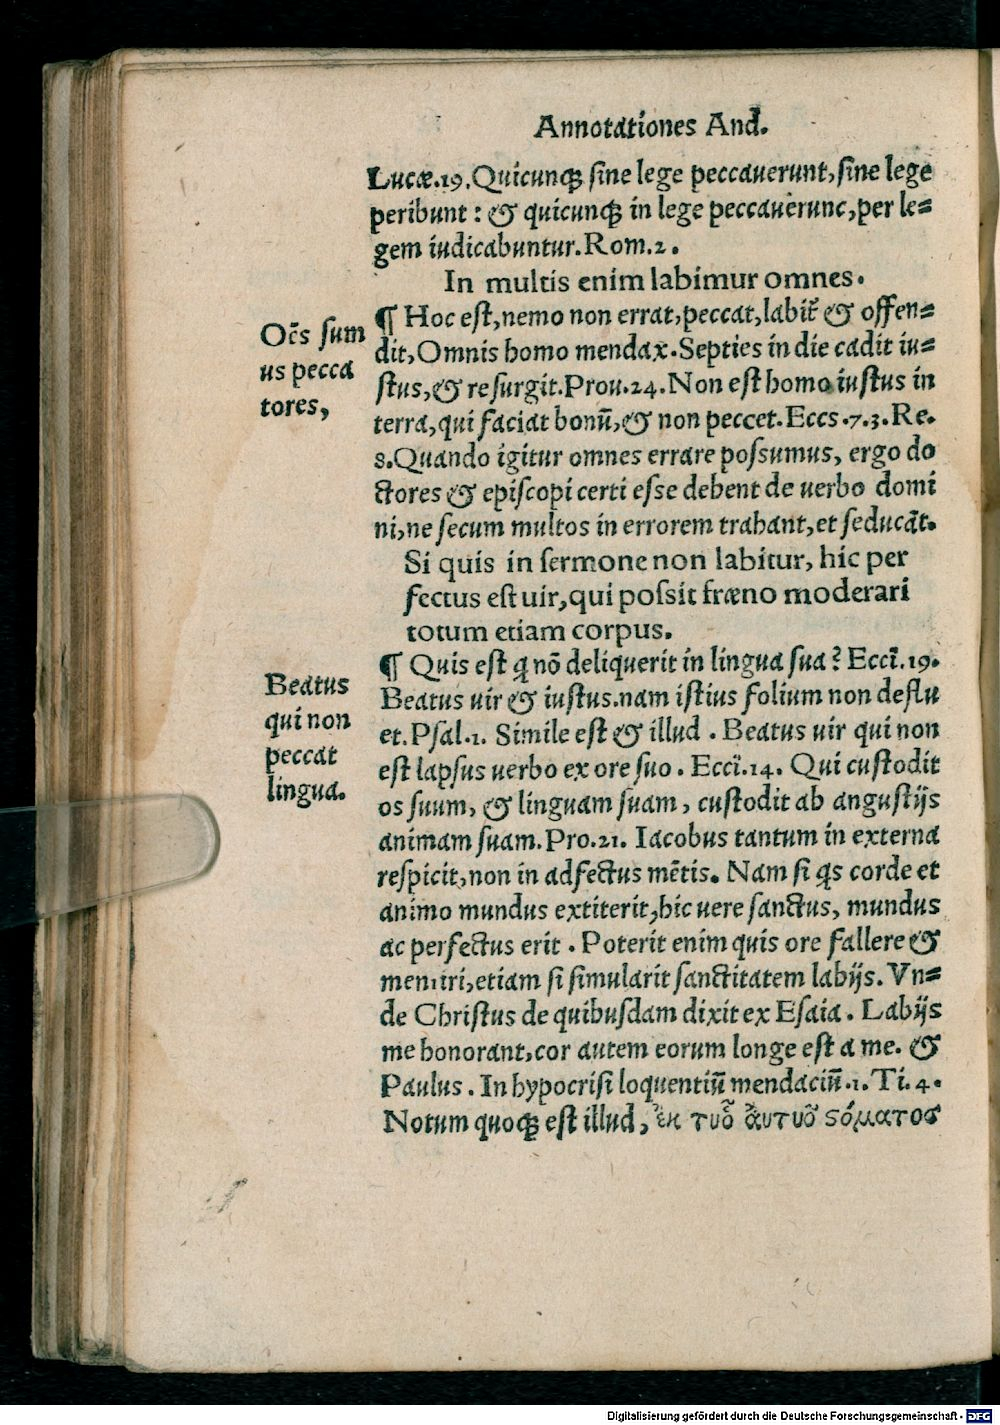 Annotationes And.
Lucæ.19.Quicunqꝫ sine lege peccauerunt,sine lege
peribunt : & quicunqꝫ in lege peccauerunc,per le=
gem iudicabuntur.Rom.2.
In multis enim labimur omnes.
Oēs sum
us pecca
tores,
¶ Hoc est,nemo non errat,peccat,labit̃ & offen=
dit,Omnis homo mendax.Septies in die cadit iu=
stus,& resurgit.Prou.24.Non est homo iustus in
terra,qui faciat bonū,& non peccet.Eccs.7.3.Re.
8.Quando igitur omnes errare possumus, ergo do
ctores & episcopi certi esse debent de uerbo domi
ni,ne secum multos in errorem trahant,et seducāt.
Si quis in sermone non labitur, hic per
fectus est uir,qui possit fræno moderari
totum etiam corpus.
Beatus
qui non
peccat
lingua.
¶ Quis est ꝗ nō deliquerit in lingua sua? Eccī.19.
Beatus uir & iustus.nam istius folium non deflu
et.Psal.1. Simile est & illud . Beatus uir qui non
est lapsus uerbo ex ore suo . Eccī.14. Qui custodit
os suum, & linguam suam, custodit ab angustijs
animam suam.Pro.21. Iacobus tantum in externa
respicit,non in adfectus mētis. Nam si ꝗs corde et
animo mundus extiterit,hic uere sanctus, mundus
ac perfectus erit . Poterit enim quis ore fallere &
mentiri,etiam si simularit sanctitatem labijs. Vn=
de Christus de quibusdam dixit ex Esaia . Labijs
me honorant,cor autem eorum longe est a me. &
Paulus . In hypocrisi loquentiū mendaciū.1. Ti.4.
Notum quoqꝫ est illud, ἐκ τυο͂ ἀυτυο͂ σόματος
Digitalisierung gefördert durch die Deutsche Forschungsgemeinschaft - DFG